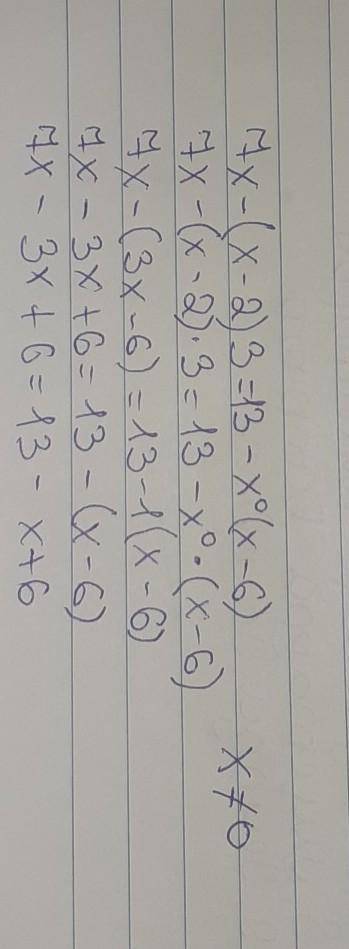 7x - (x - 2) 3 = 13 - x⁰(x - 6)
x ≠ 0
7x - (x - 2) · 3 = 13 - x⁰ · (x - 6)
7x - (3x - 6) = 13 - 1(x - 6)
7x - 3x + 6 = 13 - (x - 6)
7x - 3x + 6 = 13 - x + 6